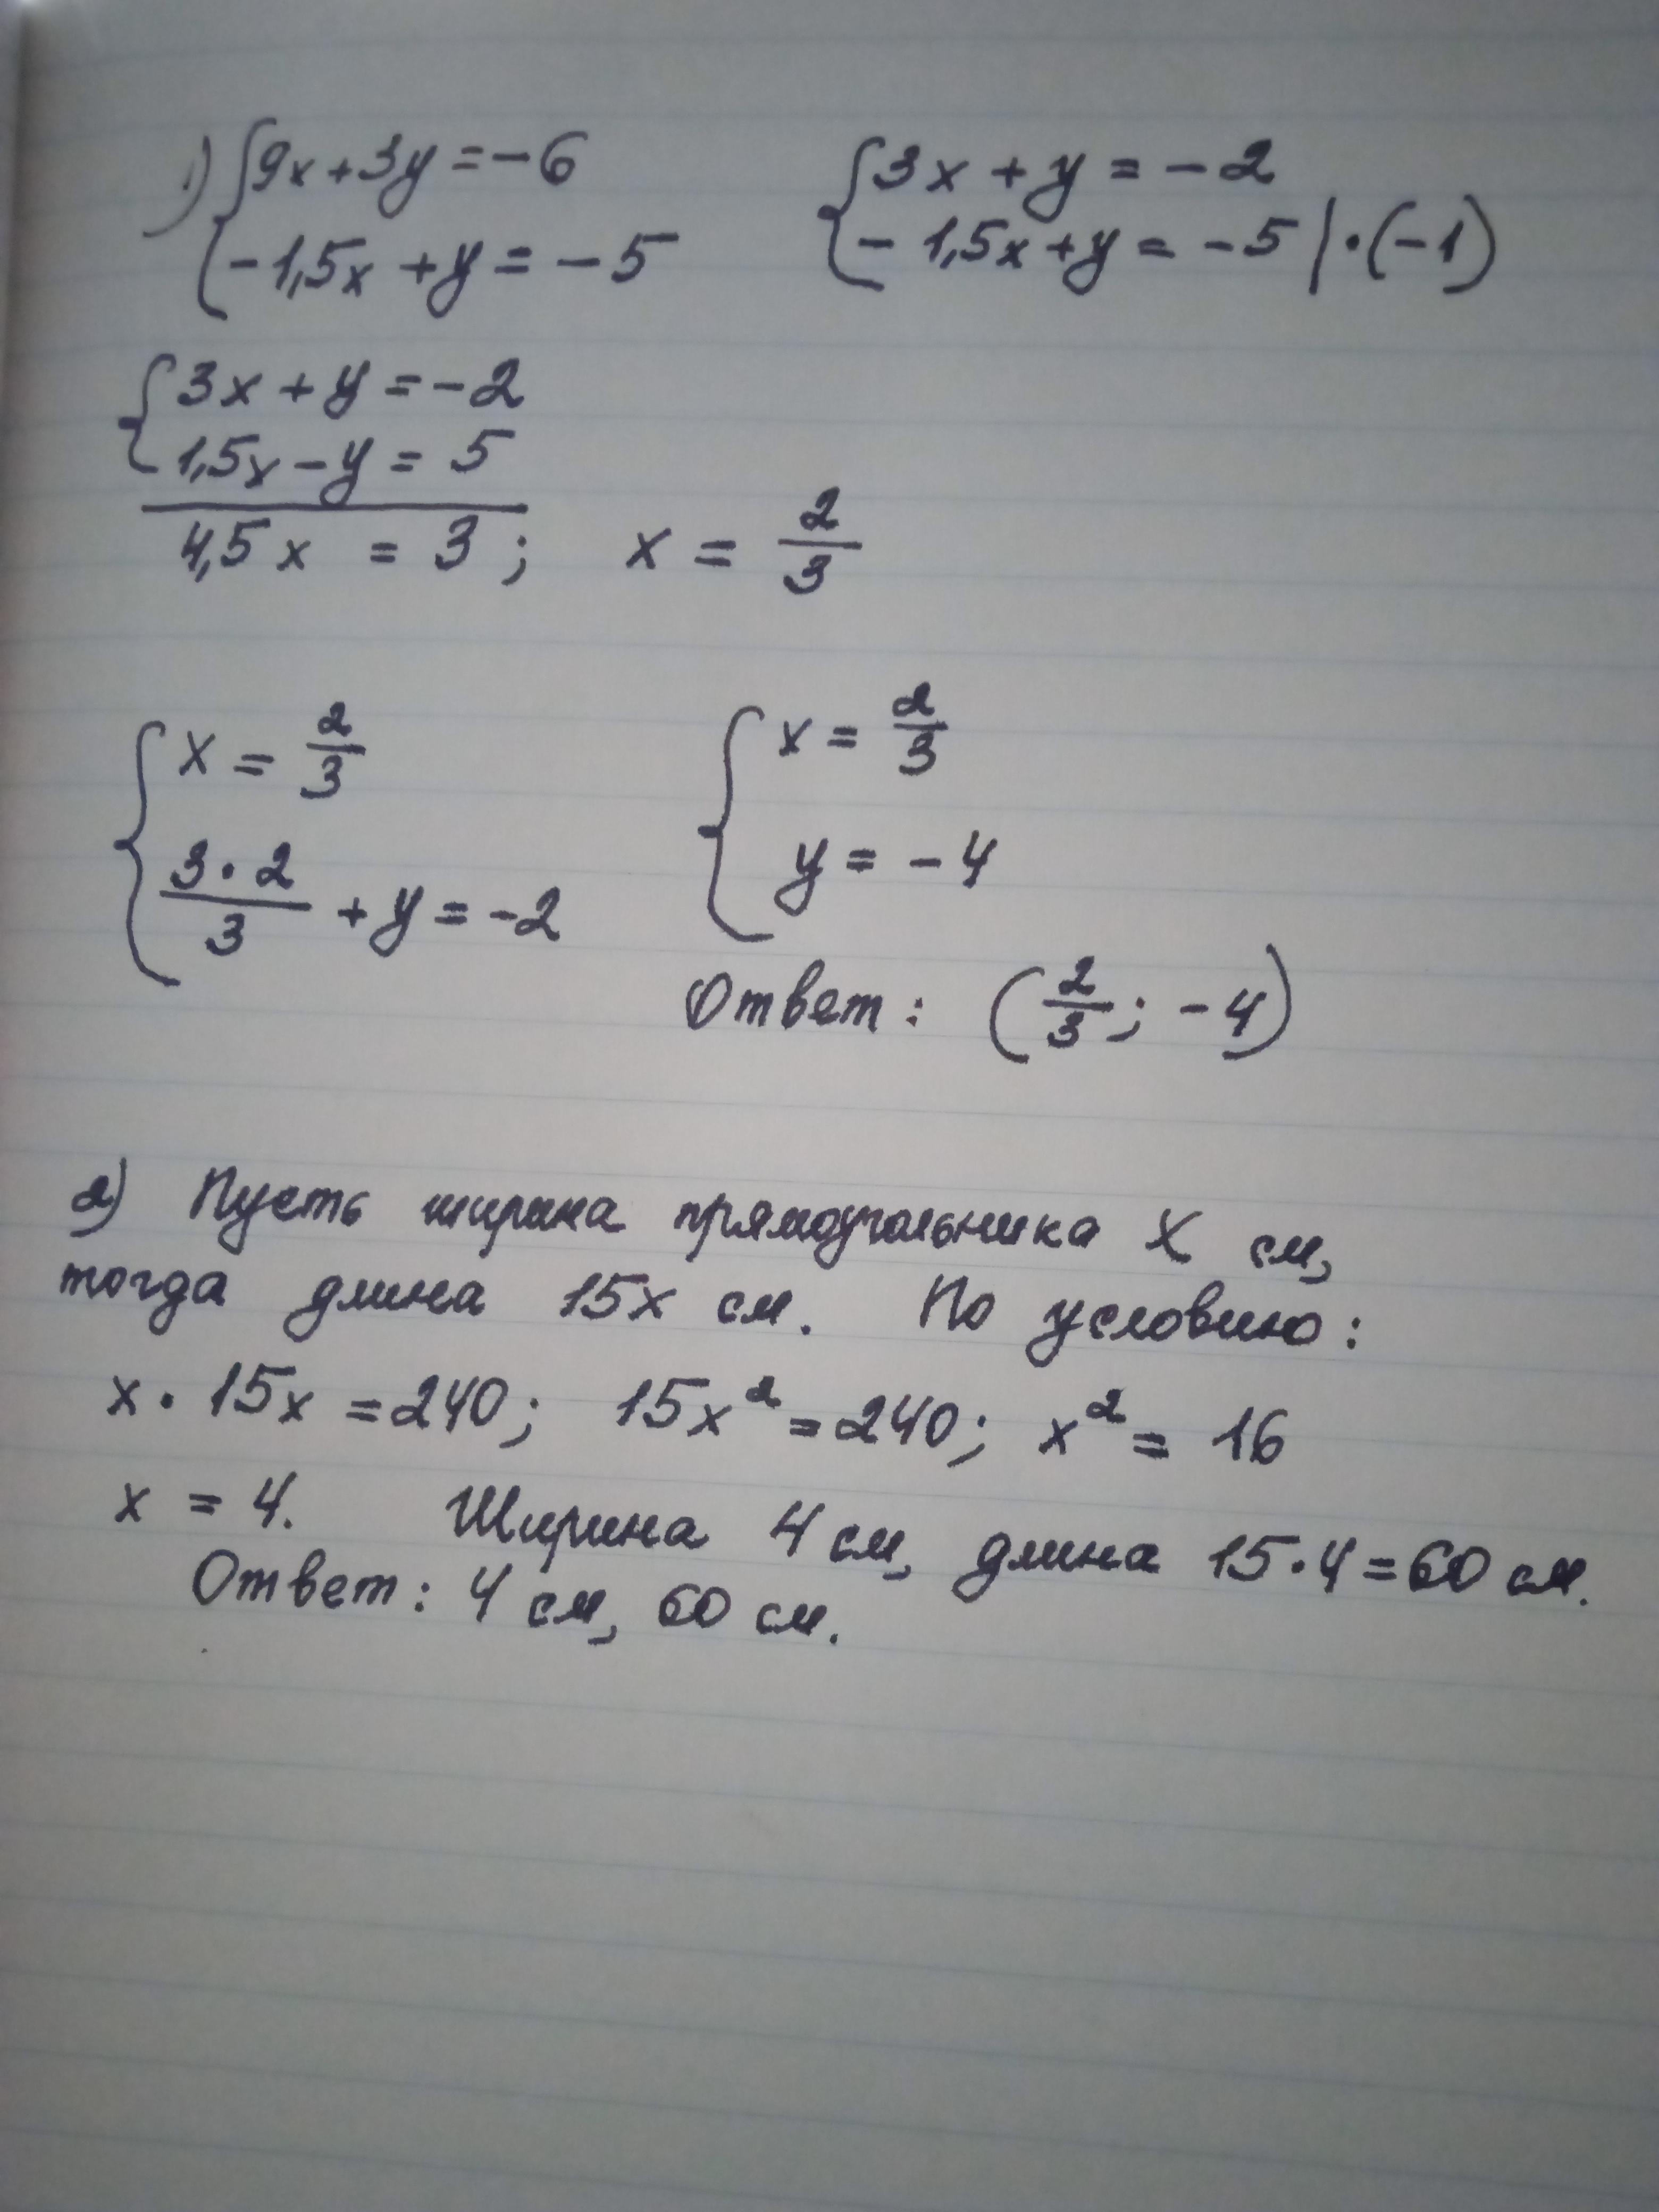 1) {9x+3y=-6 {3x+y=-2
{-1,5x+y=-5 {-1,5x+y=-5 |·(-1)
{3x+y=-2
{1,5x-y=5
4,5x = 3; x = 2/3
{x = 2/3 {x = 2/3
{3·2/3 + y = -2 {y = -4
Ответ: (2/3; -4)
2) Пусть ширина прямоугольника x см,
тогда длина 15x см. По условию:
x·15x=240; 15x²=240; x²=16
x = 4. Ширина 4 см, длина 15·4=60 см.
Ответ: 4 см, 60 см.